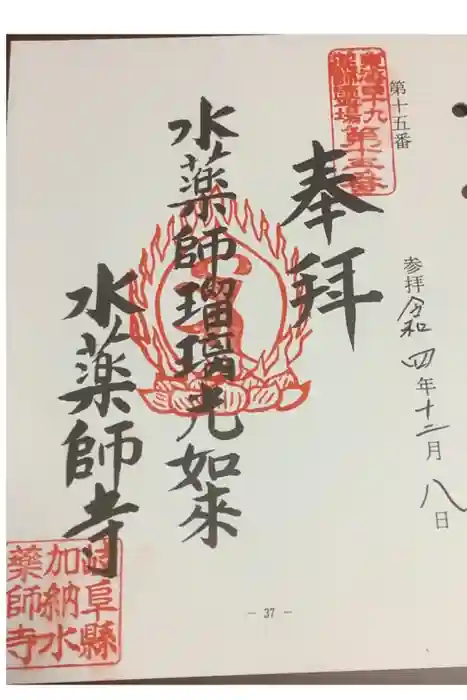 第十五番
参拝 令和四年十二月八日
東海四十九
薬師霊場
第十五番
奉拝
水薬師瑠璃光如来
水薬師寺
岐阜縣
加納水
薬師寺
- 37 -